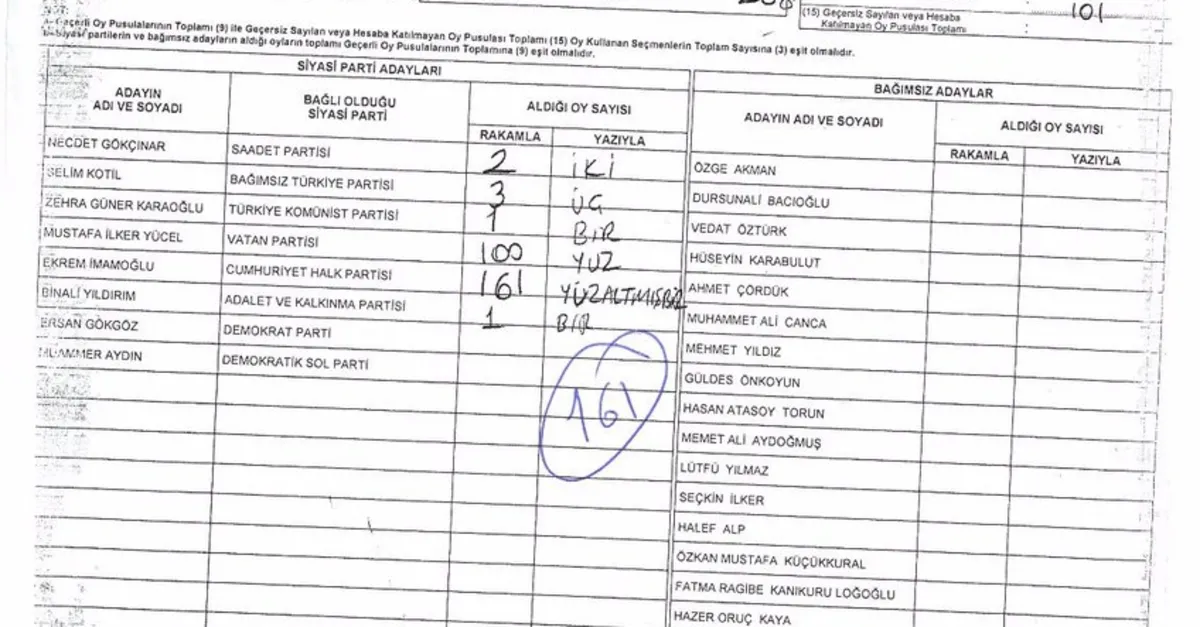 (15) Geçersiz Sayılan veya Hesaba
Katılmayan Oy Pusulası Toplamı
101
NOT:
A- Geçerli Oy Pusulalarının Toplamı (9) ile Geçersiz Sayılan veya Hesaba Katılmayan Oy Pusulası Toplamı (15) Oy Kullanan Seçmenlerin Toplam Sayısına (3) eşit olmalıdır.
B- Siyasi partilerin ve bağımsız adayların aldığı oyların toplamı Geçerli Oy Pusulalarının Toplamına (9) eşit olmalıdır.
SİYASİ PARTİ ADAYLARI
ADAYIN
ADI VE SOYADI
BAĞLI OLDUĞU
SİYASİ PARTİ
ALDIĞI OY SAYISI
RAKAMLA YAZIYLA
NECDET GÖKÇINAR SAADET PARTİSİ 2 İKİ
SELİM KOTİL BAĞIMSIZ TÜRKİYE PARTİSİ 3 ÜÇ
ZEHRA GÜNER KARAOĞLU TÜRKİYE KOMÜNİST PARTİSİ 1 BİR
MUSTAFA İLKER YÜCEL VATAN PARTİSİ 100 YÜZ
EKREM İMAMOĞLU CUMHURİYET HALK PARTİSİ 161 YÜZALTMIŞBİR
BİNALİ YILDIRIM ADALET VE KALKINMA PARTİSİ 1 BİR
ERSAN GÖKGÖZ DEMOKRAT PARTİ
MUAMMER AYDIN DEMOKRATİK SOL PARTİ
161
BAĞIMSIZ ADAYLAR
ADAYIN ADI VE SOYADI
ALDIĞI OY SAYISI
RAKAMLA YAZIYLA
ÖZGE AKMAN
DURSUNALİ BACIOĞLU
VEDAT ÖZTÜRK
HÜSEYİN KARABULUT
AHMET ÇÖRDÜK
MUHAMMET ALİ CANCA
MEHMET YILDIZ
GÜLDES ÖNKOYUN
HASAN ATASOY TORUN
MEMET ALİ AYDOĞMUŞ
LÜTFÜ YILMAZ
SEÇKİN İLKER
HALEF ALP
ÖZKAN MUSTAFA KÜÇÜKKURAL
FATMA RAGİBE KANIKURU LOĞOĞLU
HAZER ORUÇ KAYA